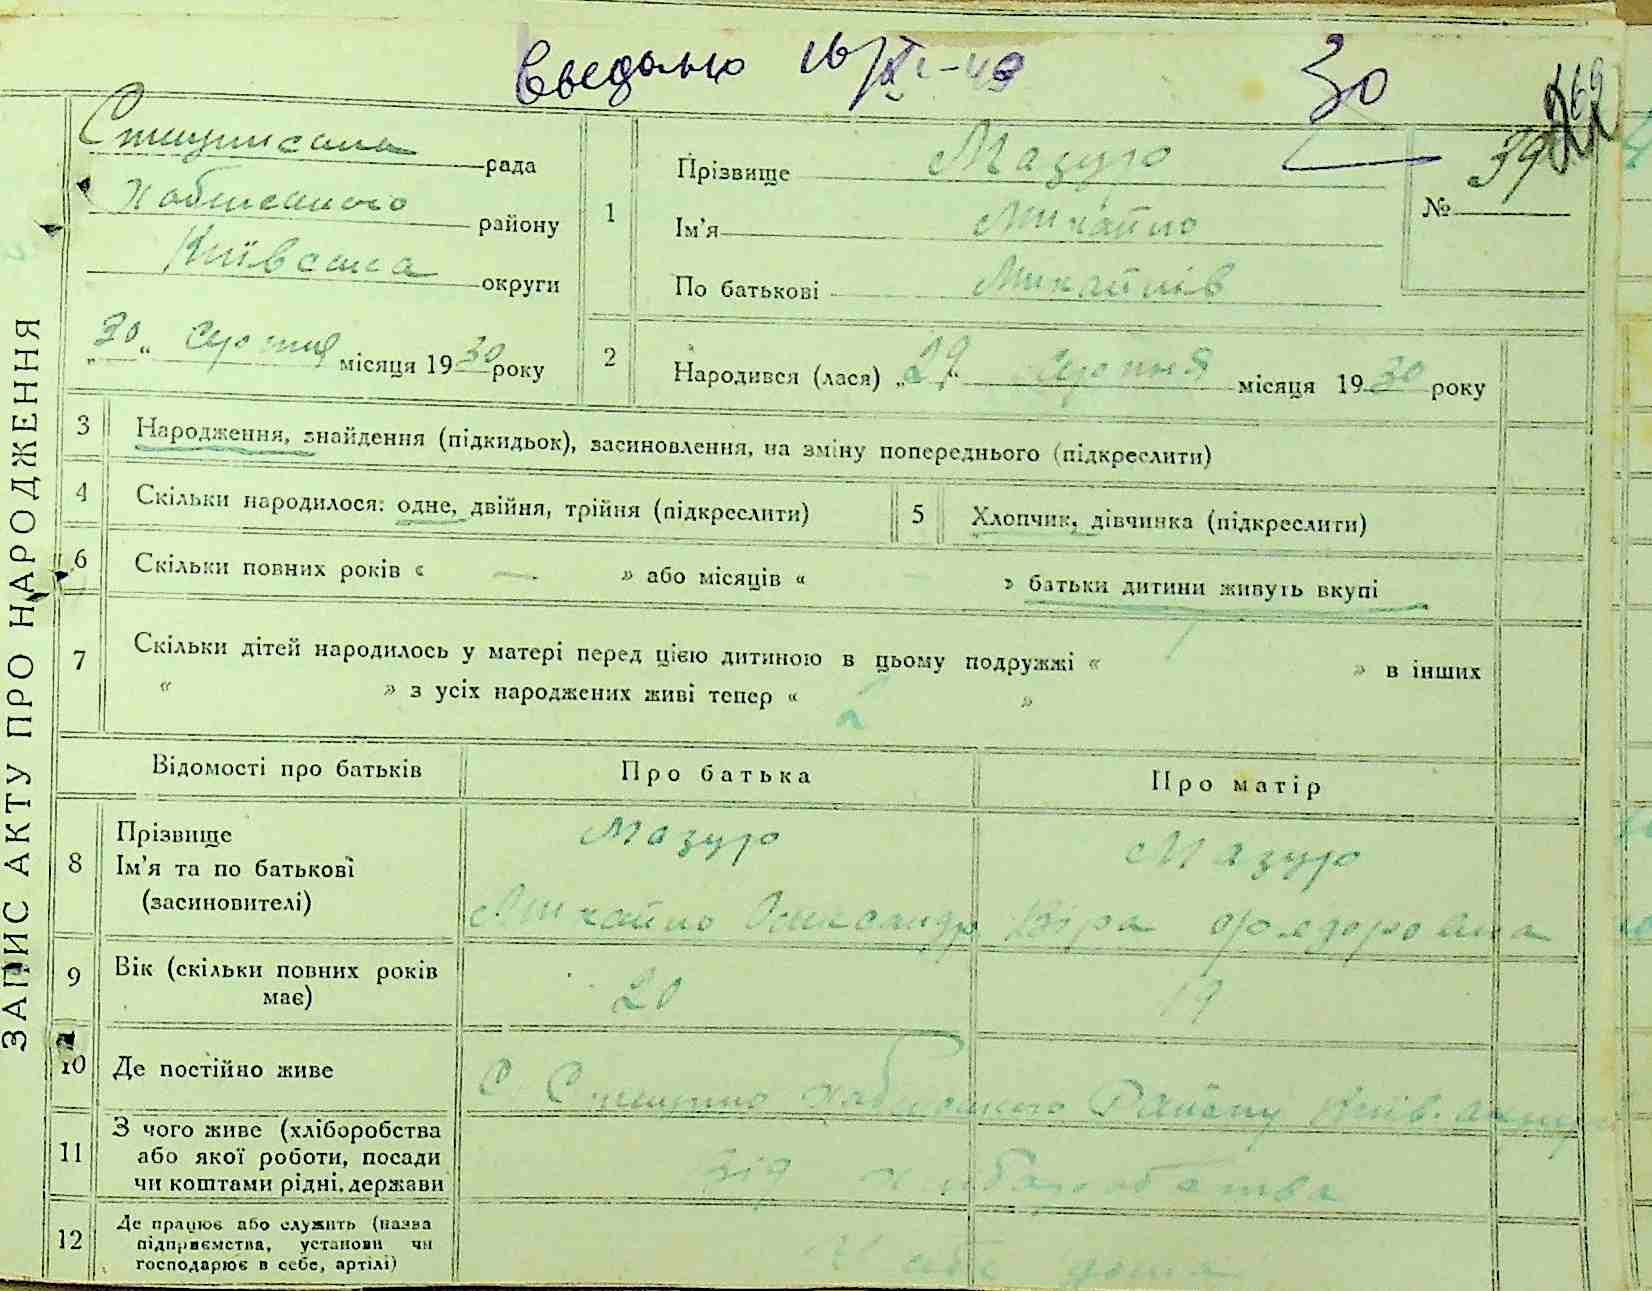 Сведенью 16/XI-49
30
262
Стишиська рада
Хабенського району
Київська округи
„30“ серпня місяця 1930 року
1
Прізвище Мазур
Ім'я Михайло
По батькові Михайлів
№ 39
2
Народився (лася) „29“ серпня місяця 1930 року
ЗАПИС АКТУ ПРО НАРОДЖЕННЯ
3 Народження, знайдення (підкидьок), засиновлення, на зміну попереднього (підкреслити)
4 Скільки народилося: одне, двійня, трійня (підкреслити)
5 Хлопчик, дівчинка (підкреслити)
6 Скільки повних років « — » або місяців « — » батьки дитини живуть вкупі
7 Скільки дітей народилось у матері перед цією дитиною в цьому подружжі « 1 » в інших
« » з усіх народжених живі тепер « 2 »
Відомості про батьків Про батька Про матір
8 Прізвище
Ім'я та по батькові
(засиновителі)
Мазур
Михайло Олександр
Мазур
Віра Федоровна
9 Вік (скільки повних років
має)
20 19
10 Де постійно живе
С Хабенського Району Київ.
11 З чого живе (хліборобства
або якої роботи, посади
чи коштами рідні, держави
Від хліборобства
12 Де працює або служить (назва
підприємства, установи чи
господарює в себе, артілі)
У себе дома